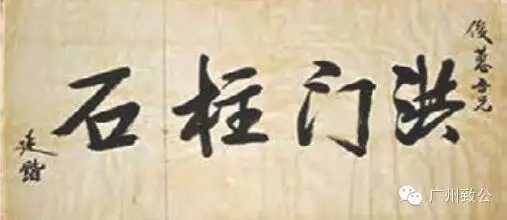 俊慕吾兄
洪门柱石
廷鍇
广州致公